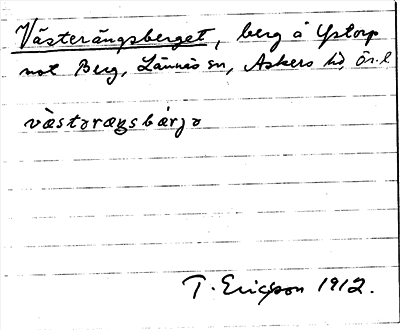 Västerängsberget, berg å Ystorp
mot Berg, Lännäs sn, Askers hd, Ör. l.
västəræŋsbærjə
T. Ericsson 1912.